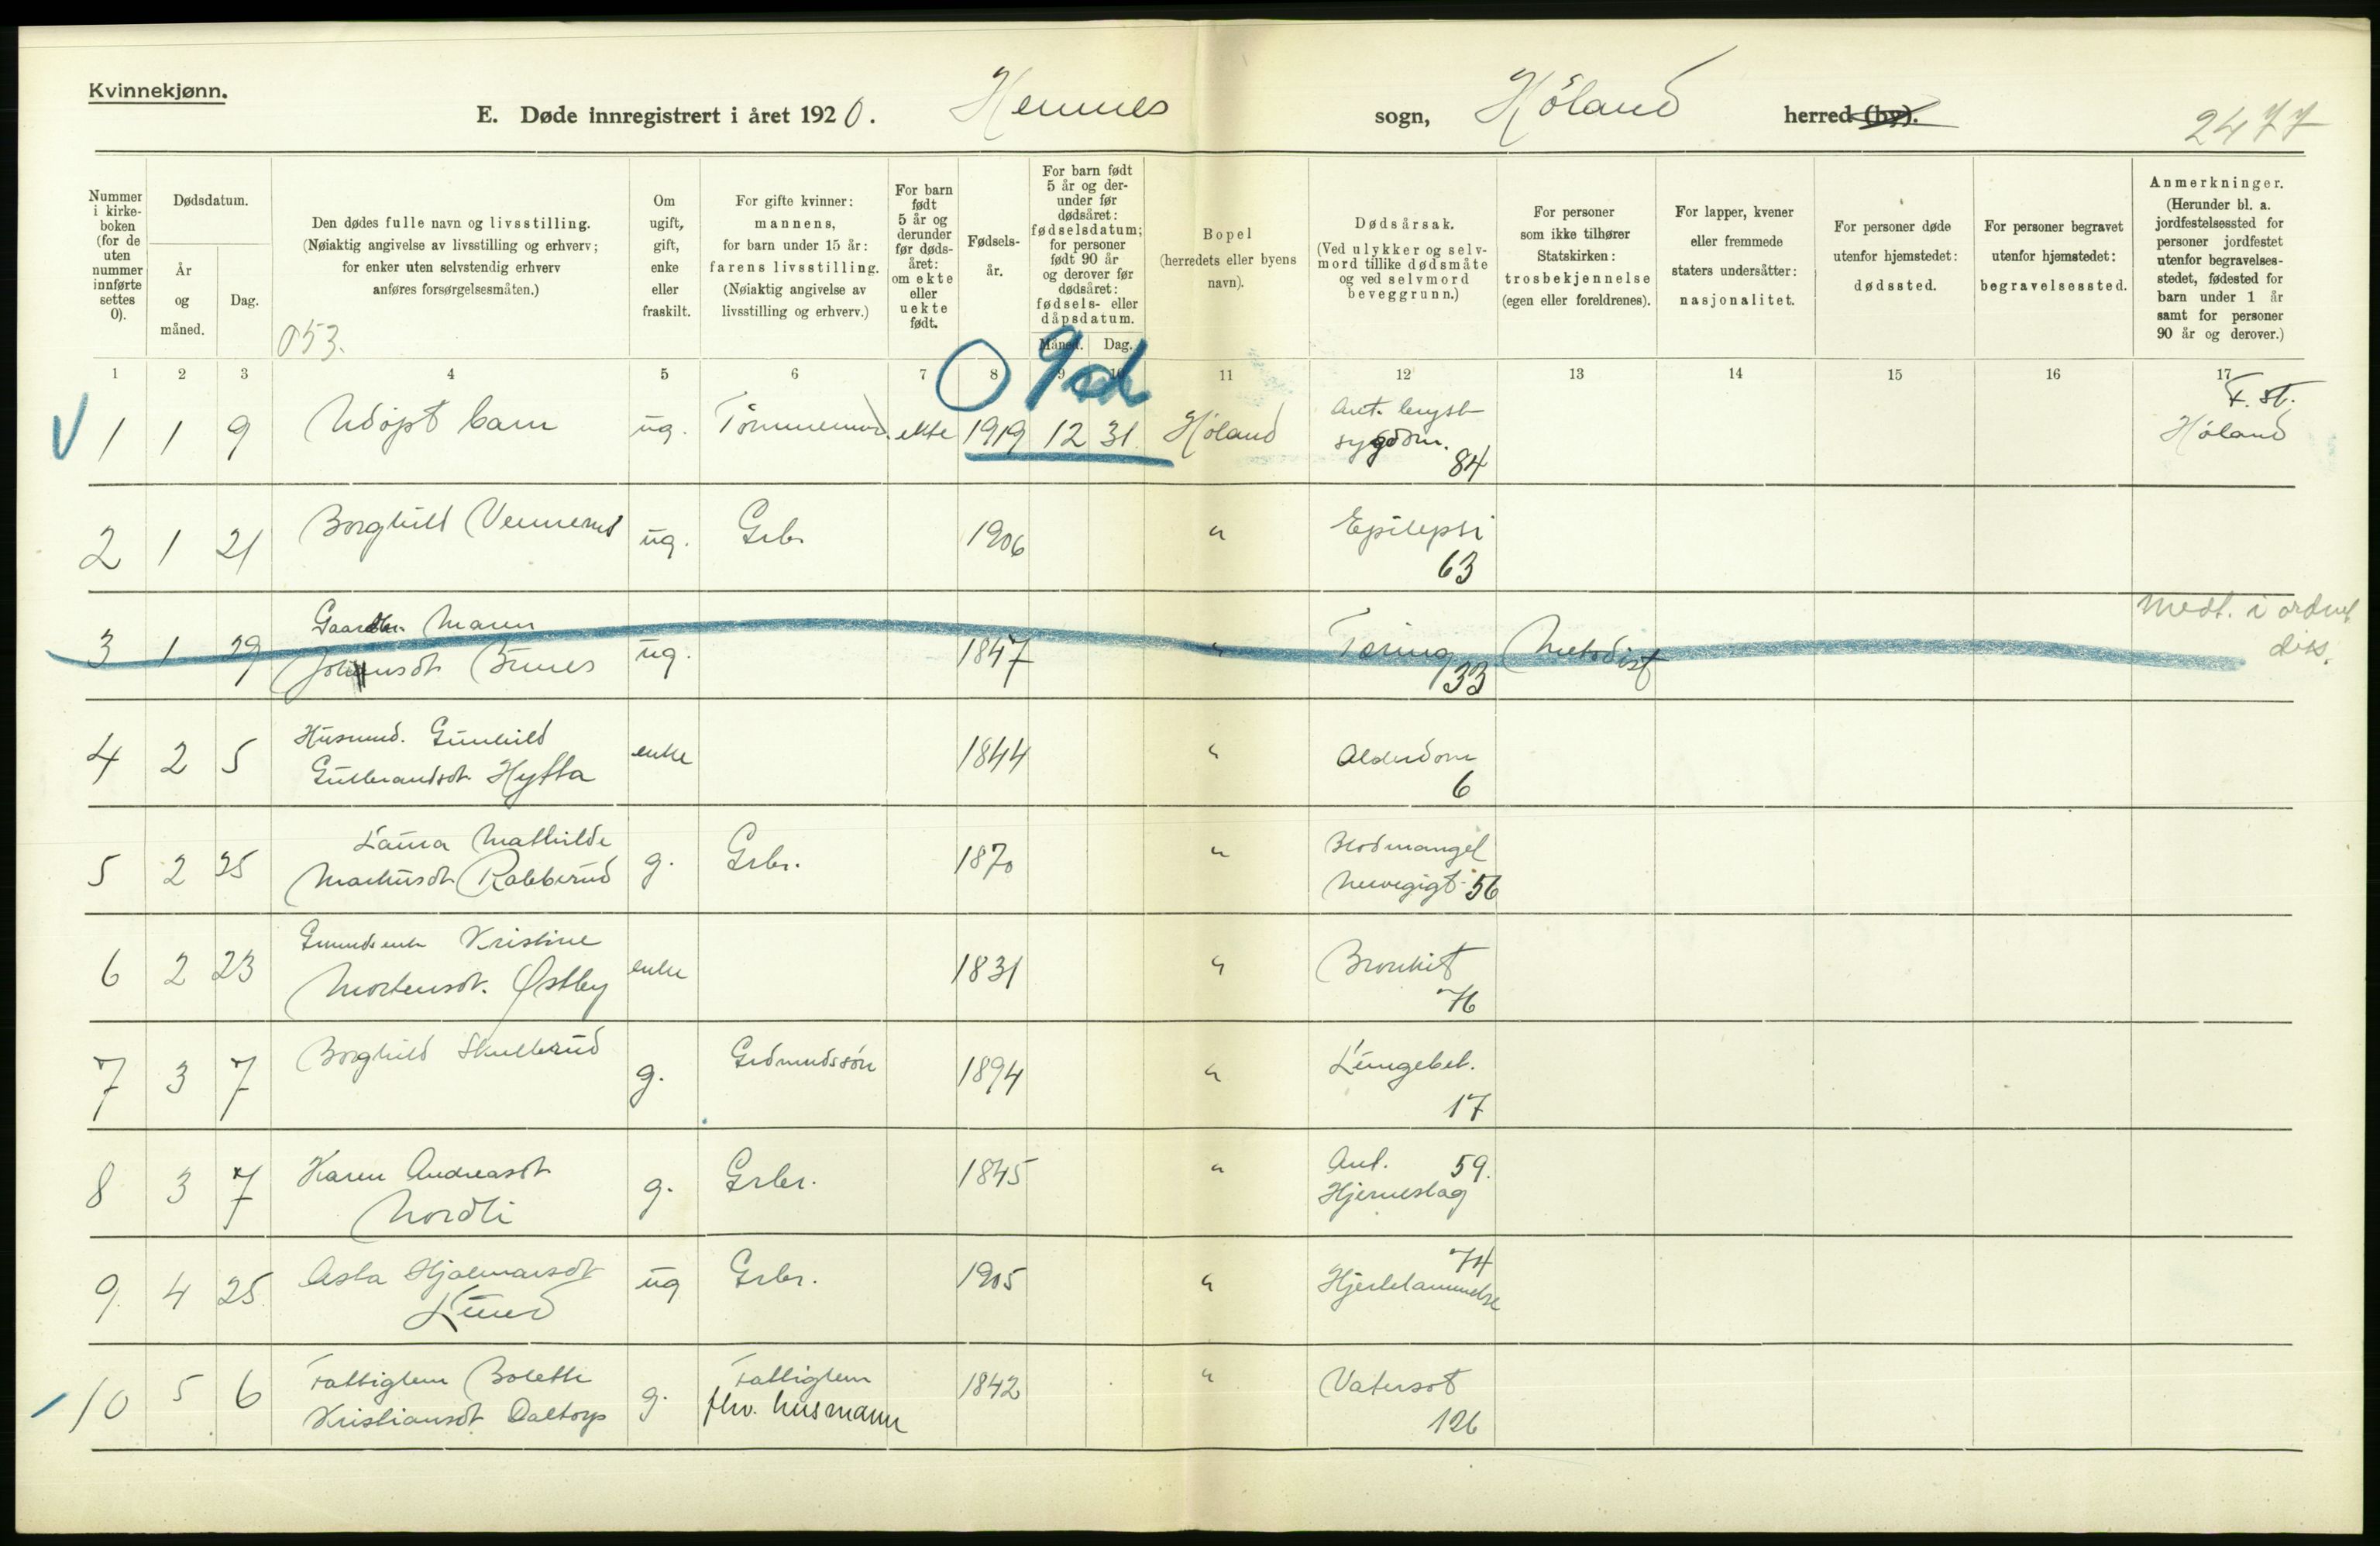 Kvinnekjønn.
E. Døde innregistrert i året 1920. Hemnes sogn, Høland herred (by).
2477
Nummer i kirkeboken (for de uten nummer innførte settes 0).
Dødsdatum.
År og måned.
Dag.
Den dødes fulle navn og livsstilling.
(Nøiaktig angivelse av livsstilling og erhverv;
for enker uten selvstendig erhverv
anføres forsørgelsesmåten.)
053.
Om ugift, gift, enke eller fraskilt.
For gifte kvinner: mannens,
for barn under 15 år:
farens livsstilling.
(Nøiaktig angivelse av
livsstilling og erhverv.)
For barn født 5 år og derunder før dødsåret: om ekte eller uekte født.
Fødselsår.
For barn født 5 år og derunder før dødsåret: fødselsdatum; for personer født 90 år og derover før dødsåret: fødsels- eller dåpsdatum.
Måned. Dag.
Bopel
(herredets eller byens navn).
Dødsårsak.
(Ved ulykker og selvmord tillike dødsmåte og ved selvmord beveggrunn.)
For personer som ikke tilhører Statskirken: trosbekjennelse (egen eller foreldrenes).
For lapper, kvener eller fremmede staters undersåtter: nasjonalitet.
For personer døde utenfor hjemstedet: dødssted.
For personer begravet utenfor hjemstedet: begravelsessted.
Anmerkninger.
(Herunder bl. a. jordfestelsessted for personer jordfestet utenfor begravelsesstedet, fødested for barn under 1 år samt for personer 90 år og derover.)
1 2 3 4 5 6 7 8 9 10 11 12 13 14 15 16 17
0 9d
1 1 9 Udøpt barn ug. Tømmermd. ekte 1919 12 31 Høland Ant. brystsygdom. 84 F. st. Høland
2 1 21 Borghild Vennerud ug. Grbr. 1906 " Epilepsi 63
3 1 29 Maren ug. 1847 " Tæring 33 Metodist Medt. i ordnet diss.
4 2 5 Husmd. Gunhild Gulbrandsdt. Hytta enke 1844 " Alderdom 6
5 2 25 Laura Mathilde Markusdt. Rabberud g. Grbr. 1870 " Blodmangel Nervegigt 56
6 2 23 Kristine Mortensdt. Østby enke 1831 " Bronkit 76
7 3 7 Borghild Skullerud g. Grdmandssøn 1894 " Lungebet. 17
8 3 7 Karen Andreasdt. Nordli g. Grbr. 1845 " Ant. 59. Hjerneslag
9. 4 25 Asta Hjalmarsdt. Lund ug Grbr. 1905 " 74 Hjertelammelse
10 5 6 Fattiglem Bolette Kristiansdt. Daltorp g. Fattiglem fhv. husmann 1842 " Vatersot 126